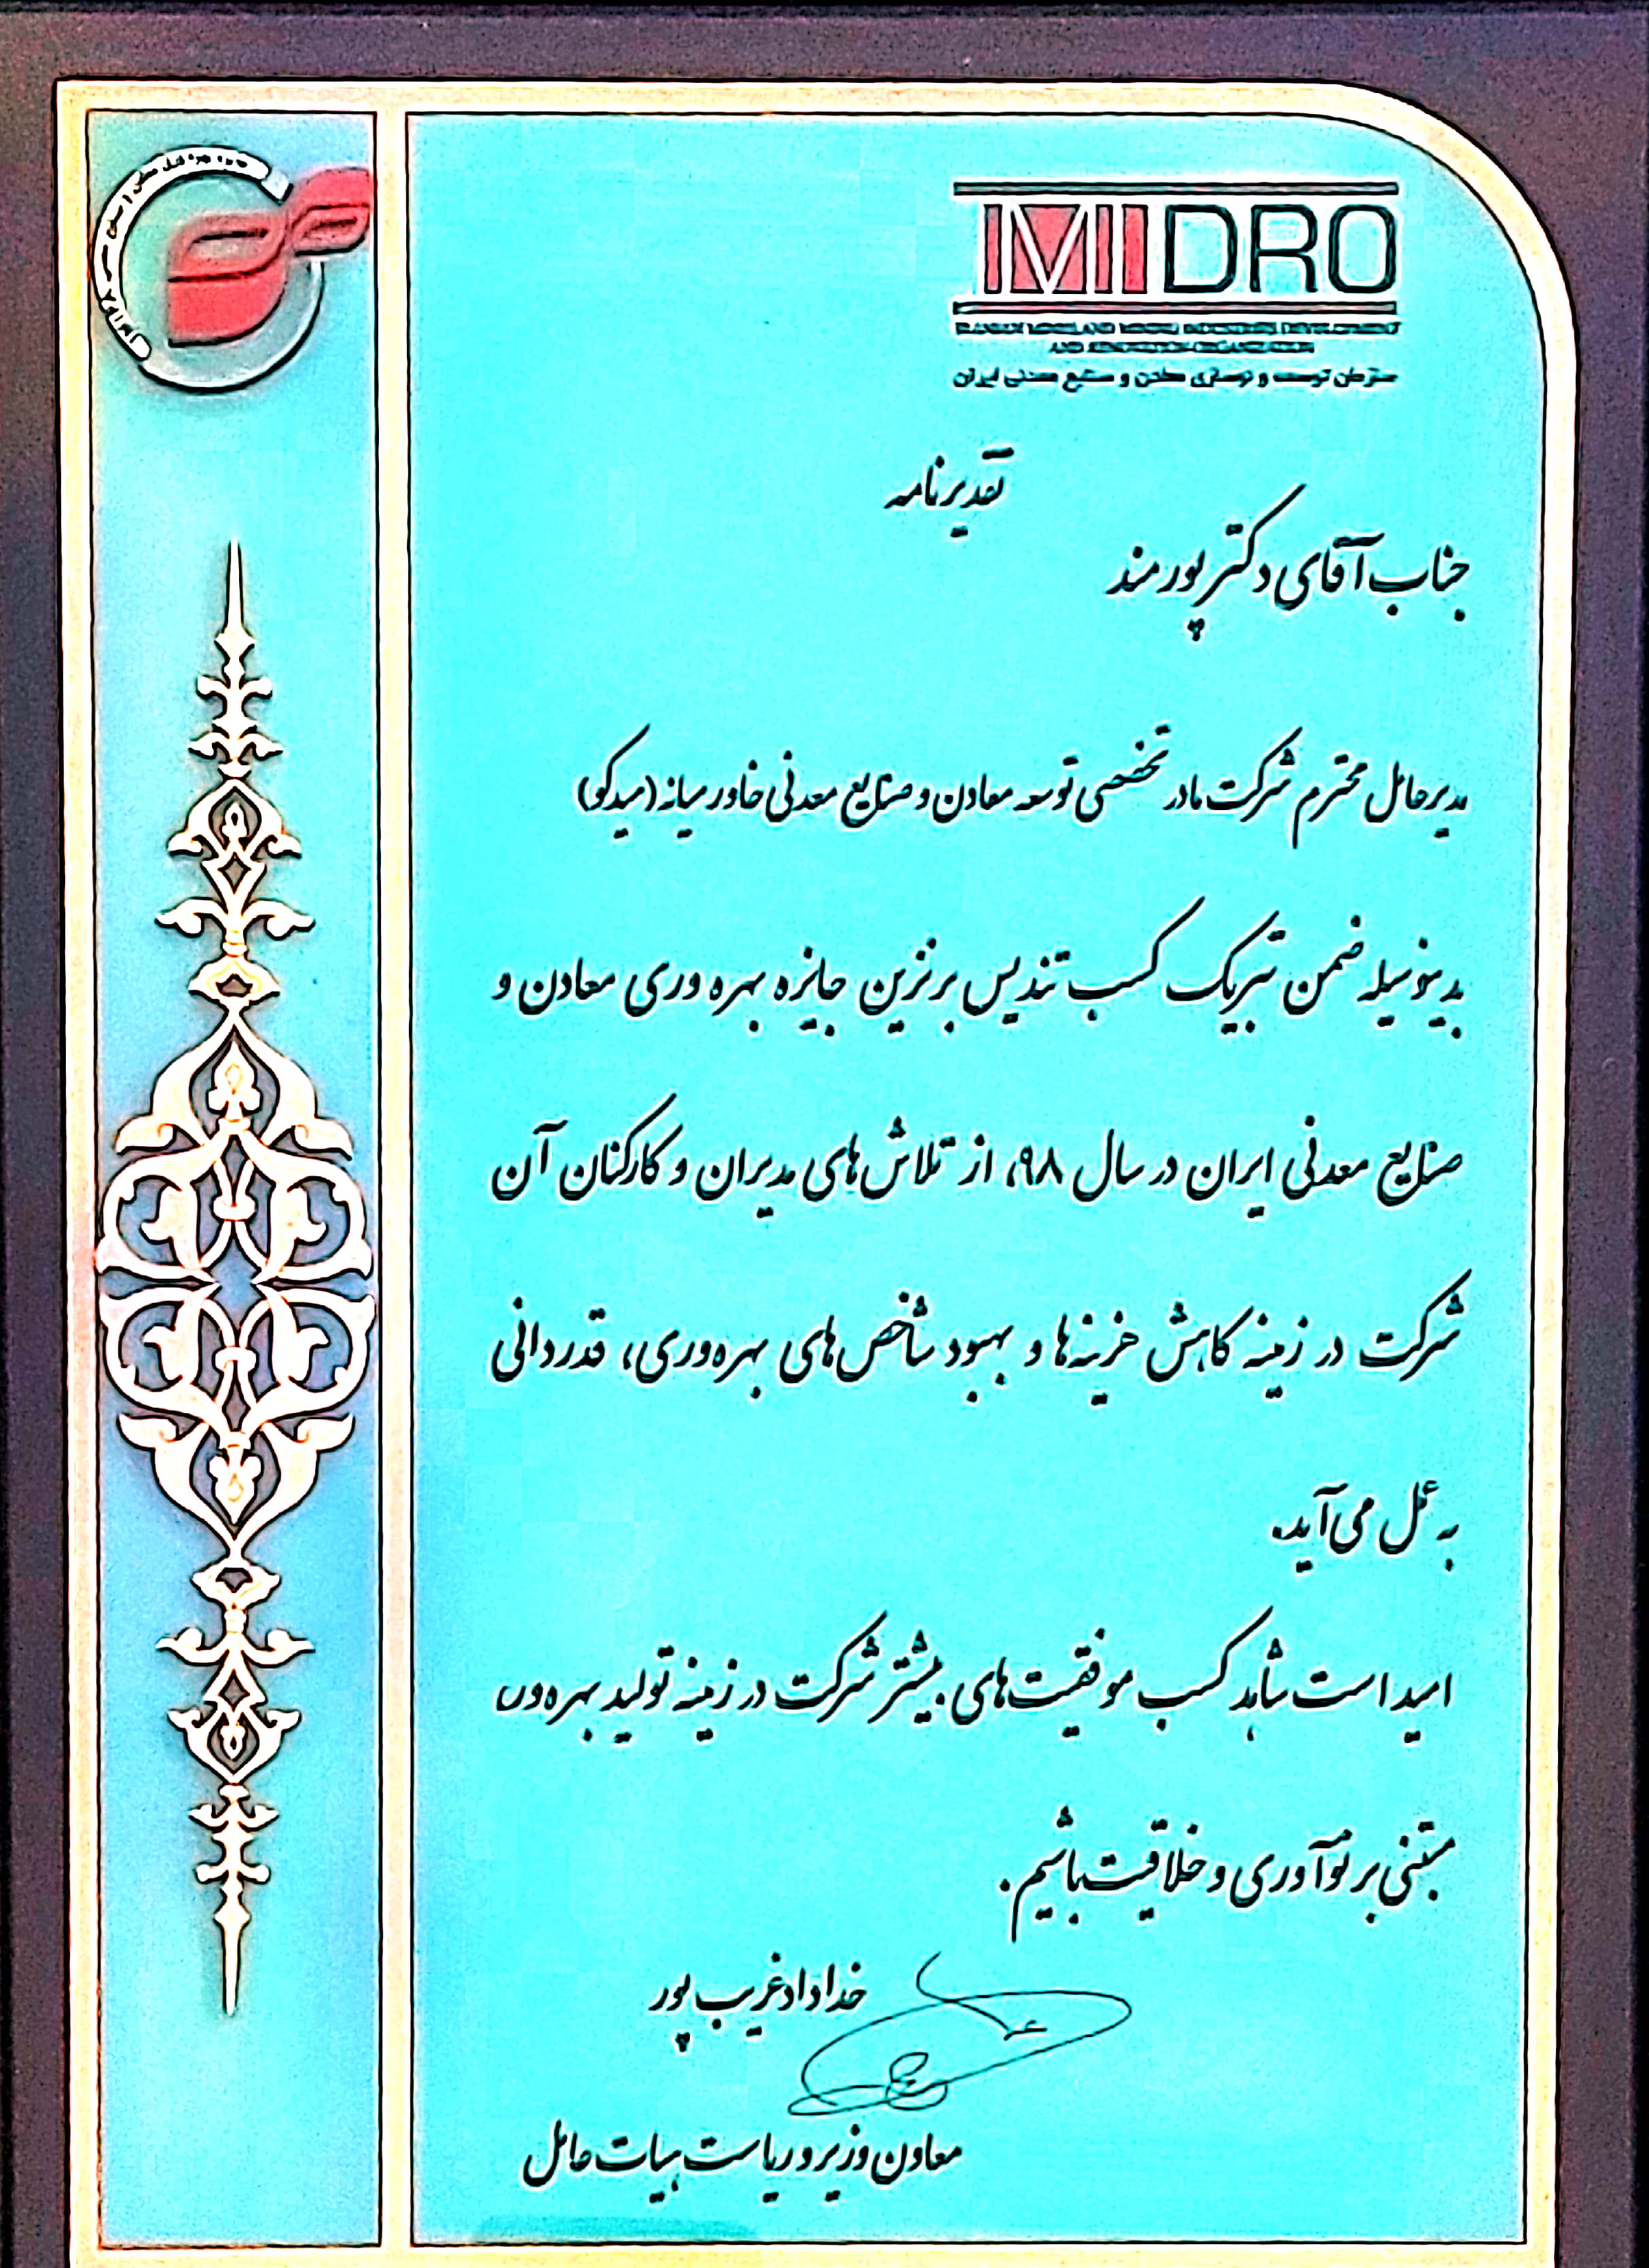 IMIDRO
IRANIAN MINES AND MINING INDUSTRIES DEVELOPMENT
AND RENOVATION ORGANIZATION
سازمان توسعه و نوسازی معادن و صنایع معدنی ایران
تقدیرنامه
جناب آقای دکتر پورمند
مدیرعامل محترم شرکت مادر تخصصی توسعه معادن و صنایع معدنی خاورمیانه (میدکو)
بدینوسیله ضمن تبریک کسب تندیس برنزین جایزه بهره وری معادن و
صنایع معدنی ایران در سال ۹۸، از تلاش‌های مدیران و کارکنان آن
شرکت در زمینه کاهش هزینه‌ها و بهبود شاخص‌های بهره‌وری، قدردانی
به عمل می‌آید.
امید است شاهد کسب موفقیت‌های بیشتر شرکت در زمینه تولید بهره‌ور،
مبتنی بر نوآوری و خلاقیت باشیم.
خداداد غریب پور
معاون وزیر و ریاست هیات عامل